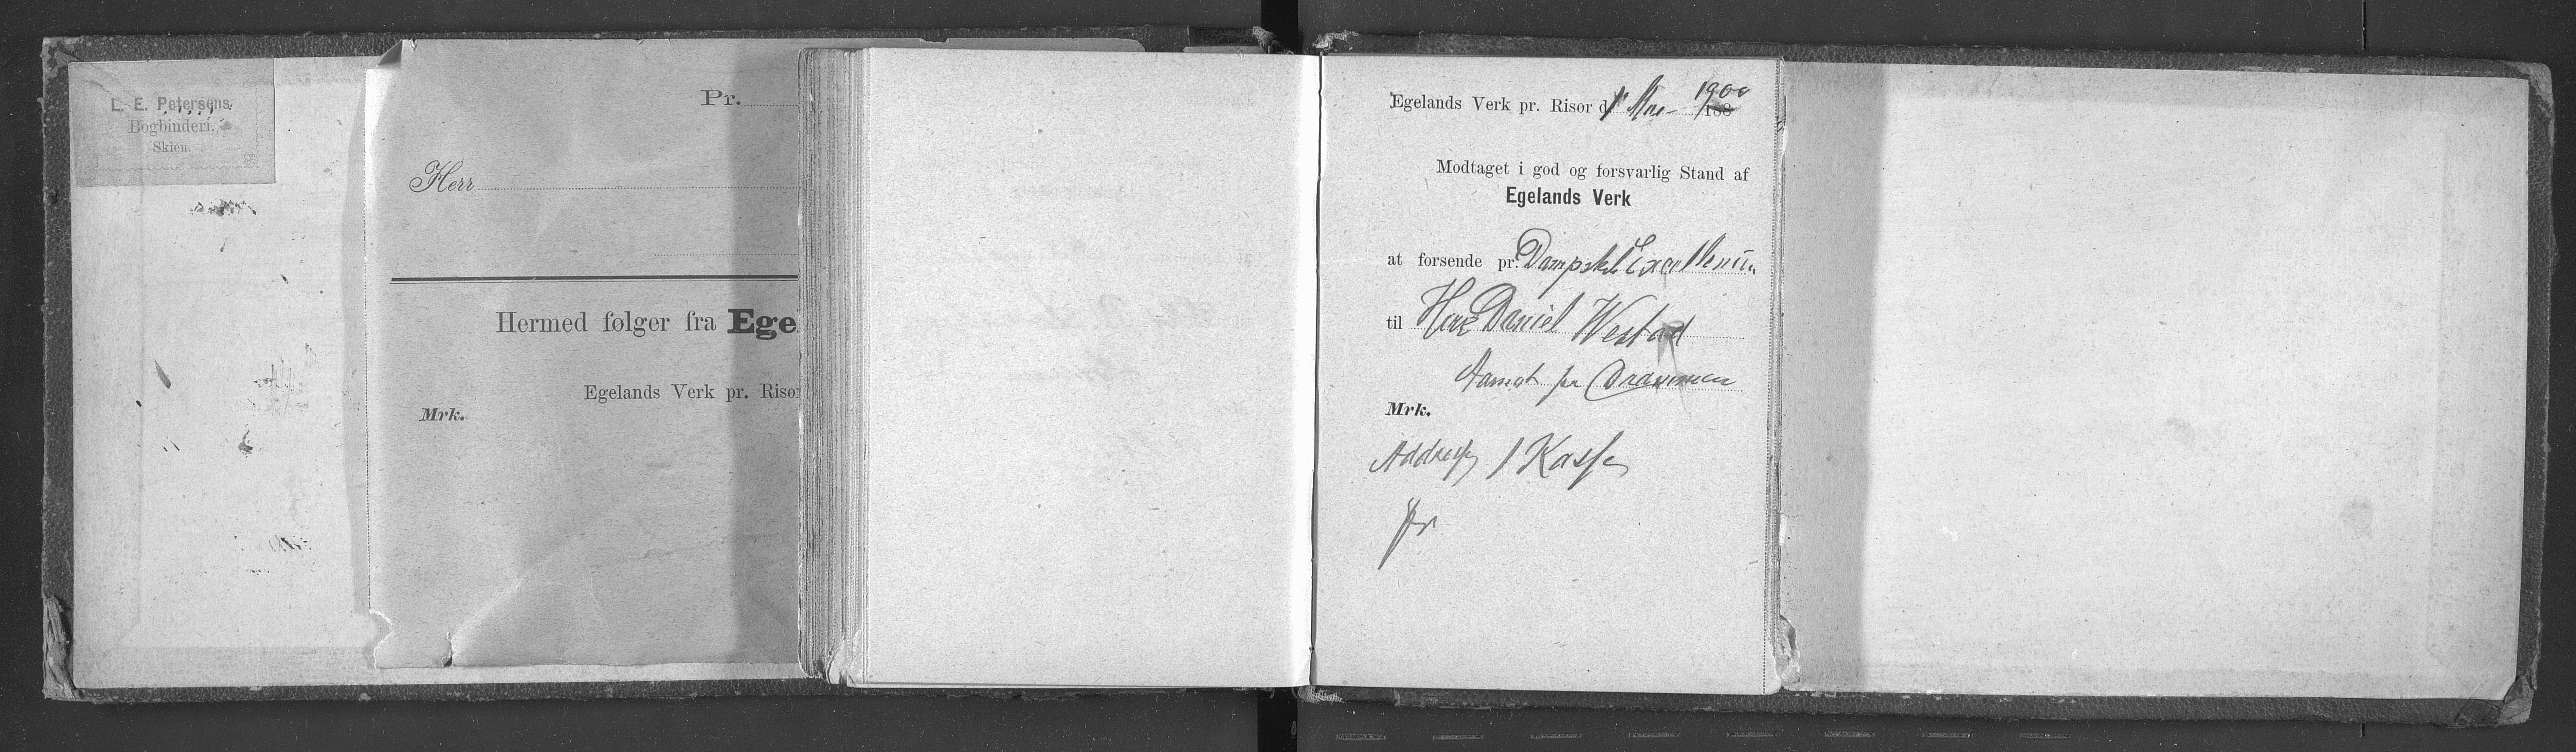 L. E. Petersens
Bogbinderi,
Skien.
Pr.
Herr
Hermed følger fra Ege
Egelands Verk pr. Risor
Mrk.
Egelands Verk pr. Risor d. 1 1900
188
Modtaget i god og forsvarlig Stand af
Egelands Verk
at forsende pr. Dampsk
til Herr Daniel Westad
Aamot pr Drammen
Mrk.
Addresse 1 Kasse
pr